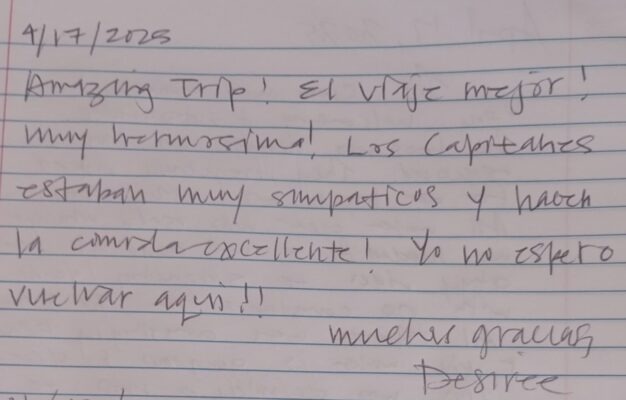 4/17/2025
Amazing Trip! El viaje mejor!
muy hermosima! Los Capitanes
estaban muy simpaticos y hacen
la comida excellente! Yo no espero
vuelvar aqui!!
muchas gracias,
Desiree